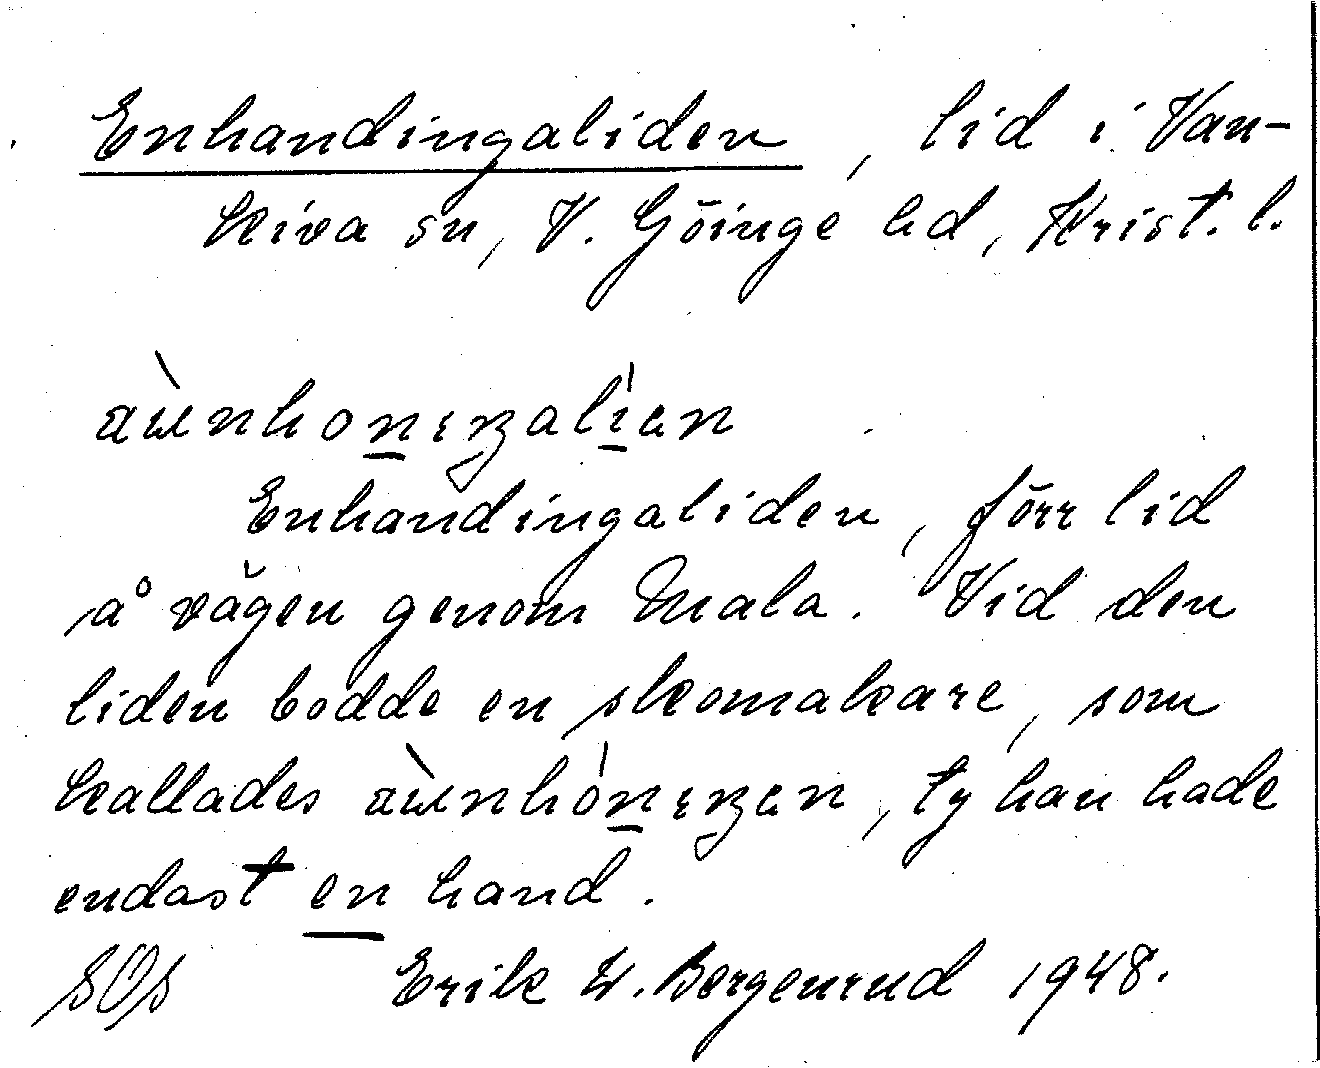 Enhandingaliden, lid i Van-
kiva sn, V. Göinge hd, Krist. l.
Enhandingaliden, förr lid
å vägen genom Mala. Vid den
liden bodde en skomakare, som
kallades, ty han hade
endast en hand.
SOS Erik W. Bergenrud 1948.